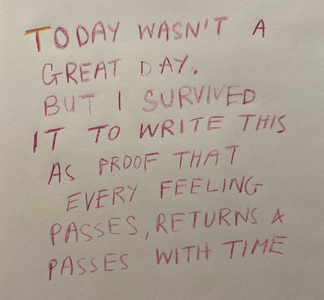 TODAY WASN'T A
GREAT DAY.
BUT I SURVIVED
IT TO WRITE THIS
AS PROOF THAT
EVERY FEELING
PASSES, RETURNS &
PASSES WITH TIME